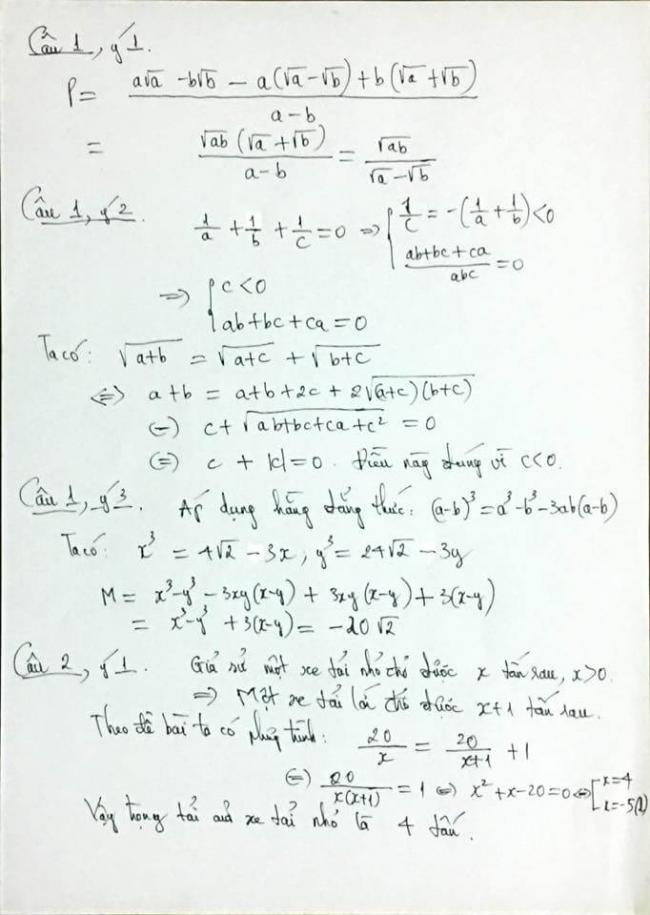 Câu 1, ý 1.
P = (a√a - b√b - a(√a - √b) + b(√a + √b)) / (a - b)
= (√ab (√a + √b)) / (a - b) = √ab / (√a - √b)
Câu 1, ý 2. 1/a + 1/b + 1/c = 0 => { 1/c = -(1/a + 1/b) < 0
(ab+bc+ca)/abc = 0
=> { c < 0
ab+bc+ca = 0
Ta có: √(a+b) = √(a+c) + √(b+c)
<=> a+b = a+b+2c + 2√((a+c)(b+c))
(=) c + √(ab+bc+ca+c²) = 0
(=) c + |c| = 0. Điều này đúng vì c<0.
Câu 1, ý 3. Áp dụng hằng đẳng thức: (a-b)³ = a³-b³-3ab(a-b)
Ta có: x³ = 4√2 - 3x, y³ = 24√2 - 3y
M = x³-y³ - 3xy(x-y) + 3xy(x-y) + 3(x-y)
= x³-y³ + 3(x-y) = -20√2
Câu 2, ý 1. Giả sử một xe tải nhỏ chở được x tấn rau, x>0.
=> Một xe tải lớn chở được x+1 tấn rau.
Theo đề bài ta có phương trình: 20/x = 20/(x+1) + 1
(=) 20/(x(x+1)) = 1 <=> x²+x-20=0 <=> [ x=4
x=-5(L)
Vậy trọng tải của xe tải nhỏ là 4 tấn.